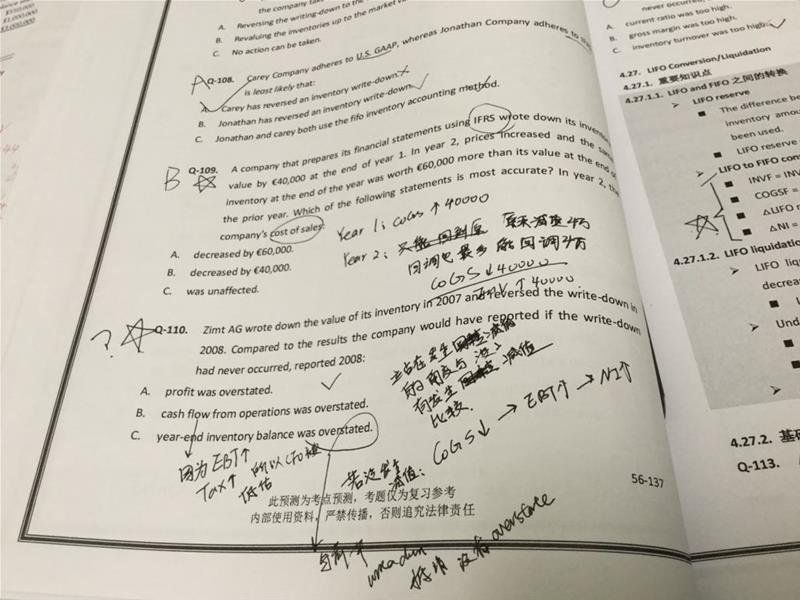 $550,000
$1,000,000
$1,000,000
the company tak
A. Reversing the writing-down to the
B. Revaluing the inventories up to the market v
C. No action can be taken.
A Q-108. Carey Company adheres to U.S. GAAP, whereas Jonathan Company adheres to
is least likely that:
A. Carey has reversed an inventory write-down.
B. Jonathan has reversed an inventory write-down.
C. Jonathan and carey both use the fifo inventory accounting method.
B Q-109. A company that prepares its financial statements using IFRS wrote down its inven
value by €40,000 at the end of year 1. In year 2, prices increased and the same
inventory at the end of the year was worth €60,000 more than its value at the end of
the prior year. Which of the following statements is most accurate? In year 2, the
company's cost of sales:
A. decreased by €60,000.
B. decreased by €40,000.
C. was unaffected.
Year 1: COGS ↑ 40000
Year 2:
回调也最多能回调4万
COGS ↓ 40000
INV ↑ 40000
? Q-110. Zimt AG wrote down the value of its inventory in 2007 and reversed the write-down in
2008. Compared to the results the company would have reported if the write-down
had never occurred, reported 2008:
A. profit was overstated.
B. cash flow from operations was overstated.
C. year-end inventory balance was overstated.
比较.
COGS ↓ → EBT↑ → NI↑
因为EBT↑
Tax↑ 所以CFO被
低估
减值:
此预测为考点预测，考题仅为复习参考
内部使用资料，严禁传播，否则追究法律责任
56-137
没有overstate
never occurre
A. current ratio was too high.
B. gross margin was too high.
C. inventory turnover was too high.
4.27. LIFO Conversion/Liquidation
4.27.1. 重要知识点
4.27.1.1. LIFO and FIFO 之间的转换
LIFO reserve
The difference be
inventory amou
been used.
LIFO reserve
LIFO to FIFO con
INVF = INV
COGSF =
△LIFO r
△NI =
4.27.1.2. LIFO liquidatio
LIFO liqu
decrea
LI
Und
4.27.2. 基础
Q-113.